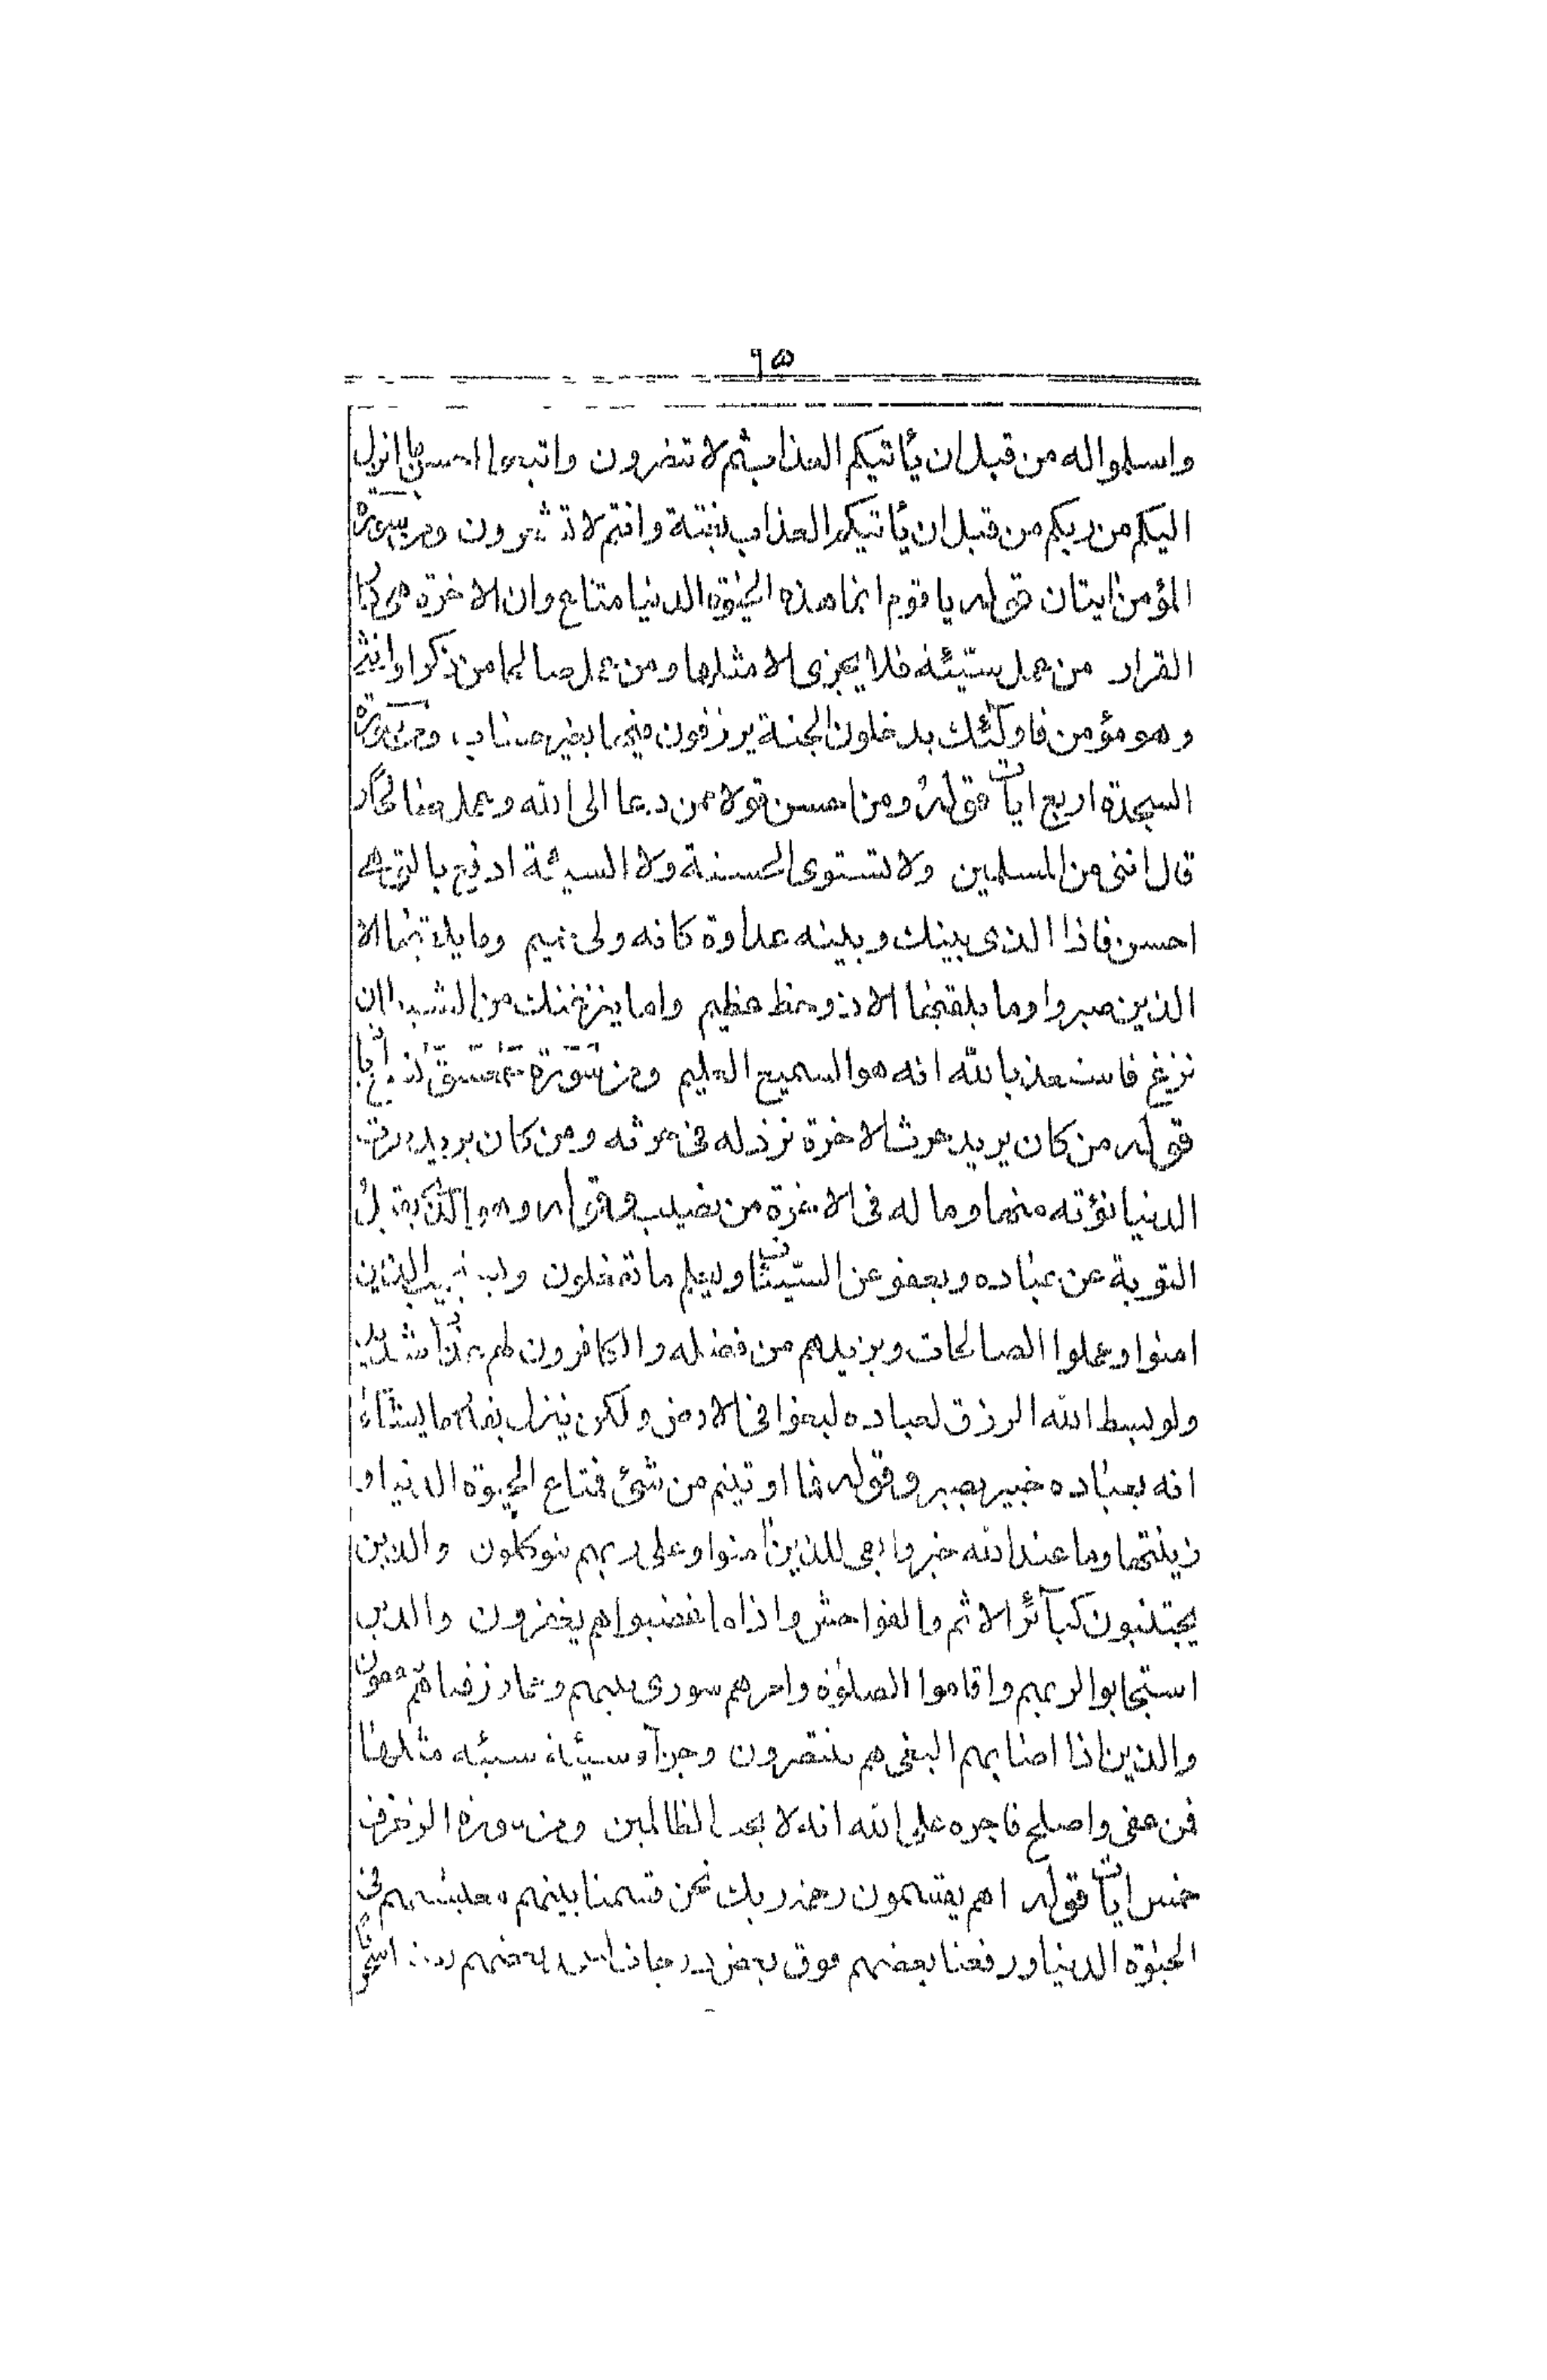 ٦٥
واسلموا له من قبل ان يأتيكم العذاب ثم لا تنصرون واتبعوا احسن ما انزل
اليكم من ربكم من قبل ان يأتيكم العذاب بغتة وانتم لا تشعرون ومن سورة
المؤمن ايتان قوله يا قوم انما هذه الحيٰوة الدنيا متاع وان الاخرة هى دار
القرار من عمل سيّئة فلا يجزى الا مثلها ومن عمل صالحا من ذكر او انثى
وهو مؤمن فاولٓئك يدخلون الجنة يرزقون فيها بغير حساب ومن سورة
السجدة اربع ايات قوله ومن احسن قولا ممن دعا الى الله وعمل صالحا و
قال اننى من المسلمين ولا تستوى الحسنة ولا السيئة ادفع بالتى هى
احسن فاذا الذى بينك وبينه عداوة كانه ولى حميم وما يلقيٰها الا
الذين صبروا وما يلقيٰها الا ذو حظ عظيم واما ينزغنك من الشيطان
نزغ فاستعذ بالله انه هو السميع العليم ومن سورة حمعسق
قوله من كان يريد حرث الاخرة نزد له فى حرثه ومن كان يريد حرث
الدنيا نؤته منها وما له فى الاخرة من نصيب وقوله وهو الذى يقبل
التوبة عن عباده ويعفو عن السيّئات ويعلم ما تفعلون ويستجيب الذين
امنوا وعملوا الصالحات ويزيدهم من فضله والكافرون لهم عذاب شديد
ولو بسط الله الرزق لعباده لبغوا فى الارض ولكن ينزل بقدر ما يشاء
انه بعباده خبير بصير وقوله فما اوتيتم من شئ فمتاع الحيٰوة الدنيا و
زينتها وما عند الله خير وابقى للذين امنوا وعلى ربهم يتوكلون والذين
يجتنبون كبآئر الاثم والفواحش واذا ما غضبوا هم يغفرون والذين
استجابوا لربهم واقاموا الصلوٰة وامرهم شورى بينهم ومما رزقناهم ينفقون
والذين اذا اصابهم البغى هم ينتصرون وجزآء سيئة سيئه مثلها
فمن عفى واصلح فاجره على الله انه لا يحب الظالمين ومن سورة الزخرف
خمس ايات قوله اهم يقسمون رحمة ربك نحن قسمنا بينهم معيشتهم فى
الحيٰوة الدنيا ورفعنا بعضهم فوق بعض درجات ليتخذ بعضهم